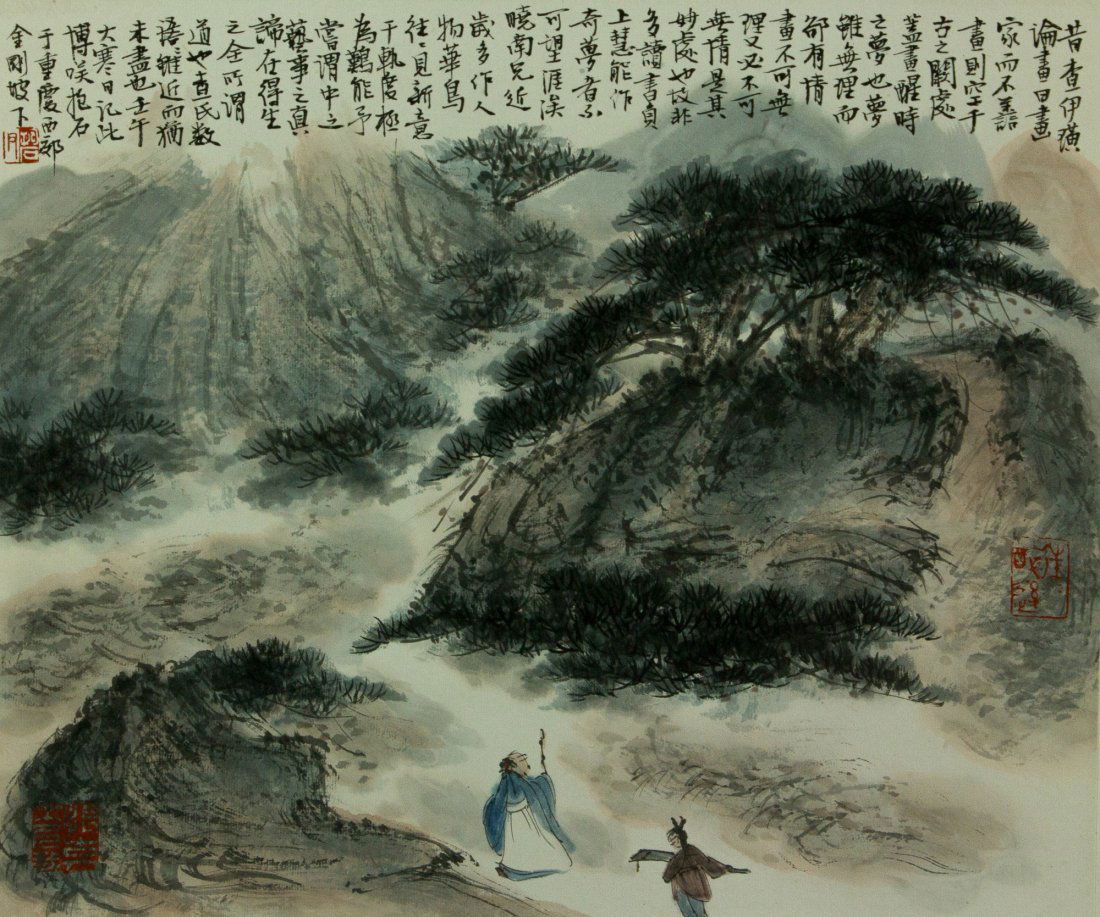 昔查伊璜
論畫曰畫
家而不善
畫則空千
古之闕處
蓋畫醒時
之夢也夢
雖無理而
卻有情
畫不可無
理又必不可
無情是其
妙處也故非
多讀書負
上慧能作
奇夢者不
可望涯涘
曉南兄近
歲多作人
物華鳥
往往見新意
于軌度極
為鸛能予
嘗謂中之
藝事之真
諦在得生
之全所謂
道也查氏數
語雖近而猶
未盡也壬午
大寒日記此
博咲抱石
于重慶西郊
金剛坡下